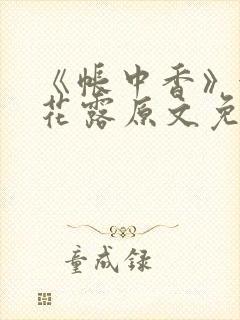 《帐中香》
花露原文免
童成录